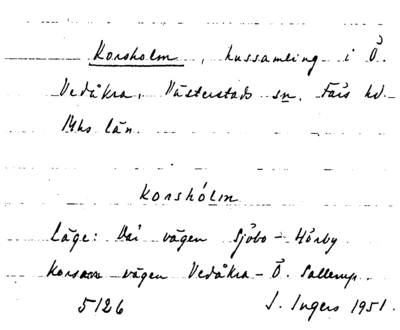 Korsholm, hussamling i Ö.
Vedåkra, Västerstads sn, Färs hd.
Mhs län.
Korshólm
Läge: Där vägen Sjöbo - Hörby
korsar vägen Vedåkra - Ö. Sallerup.
5126 I. Ingers 1951.